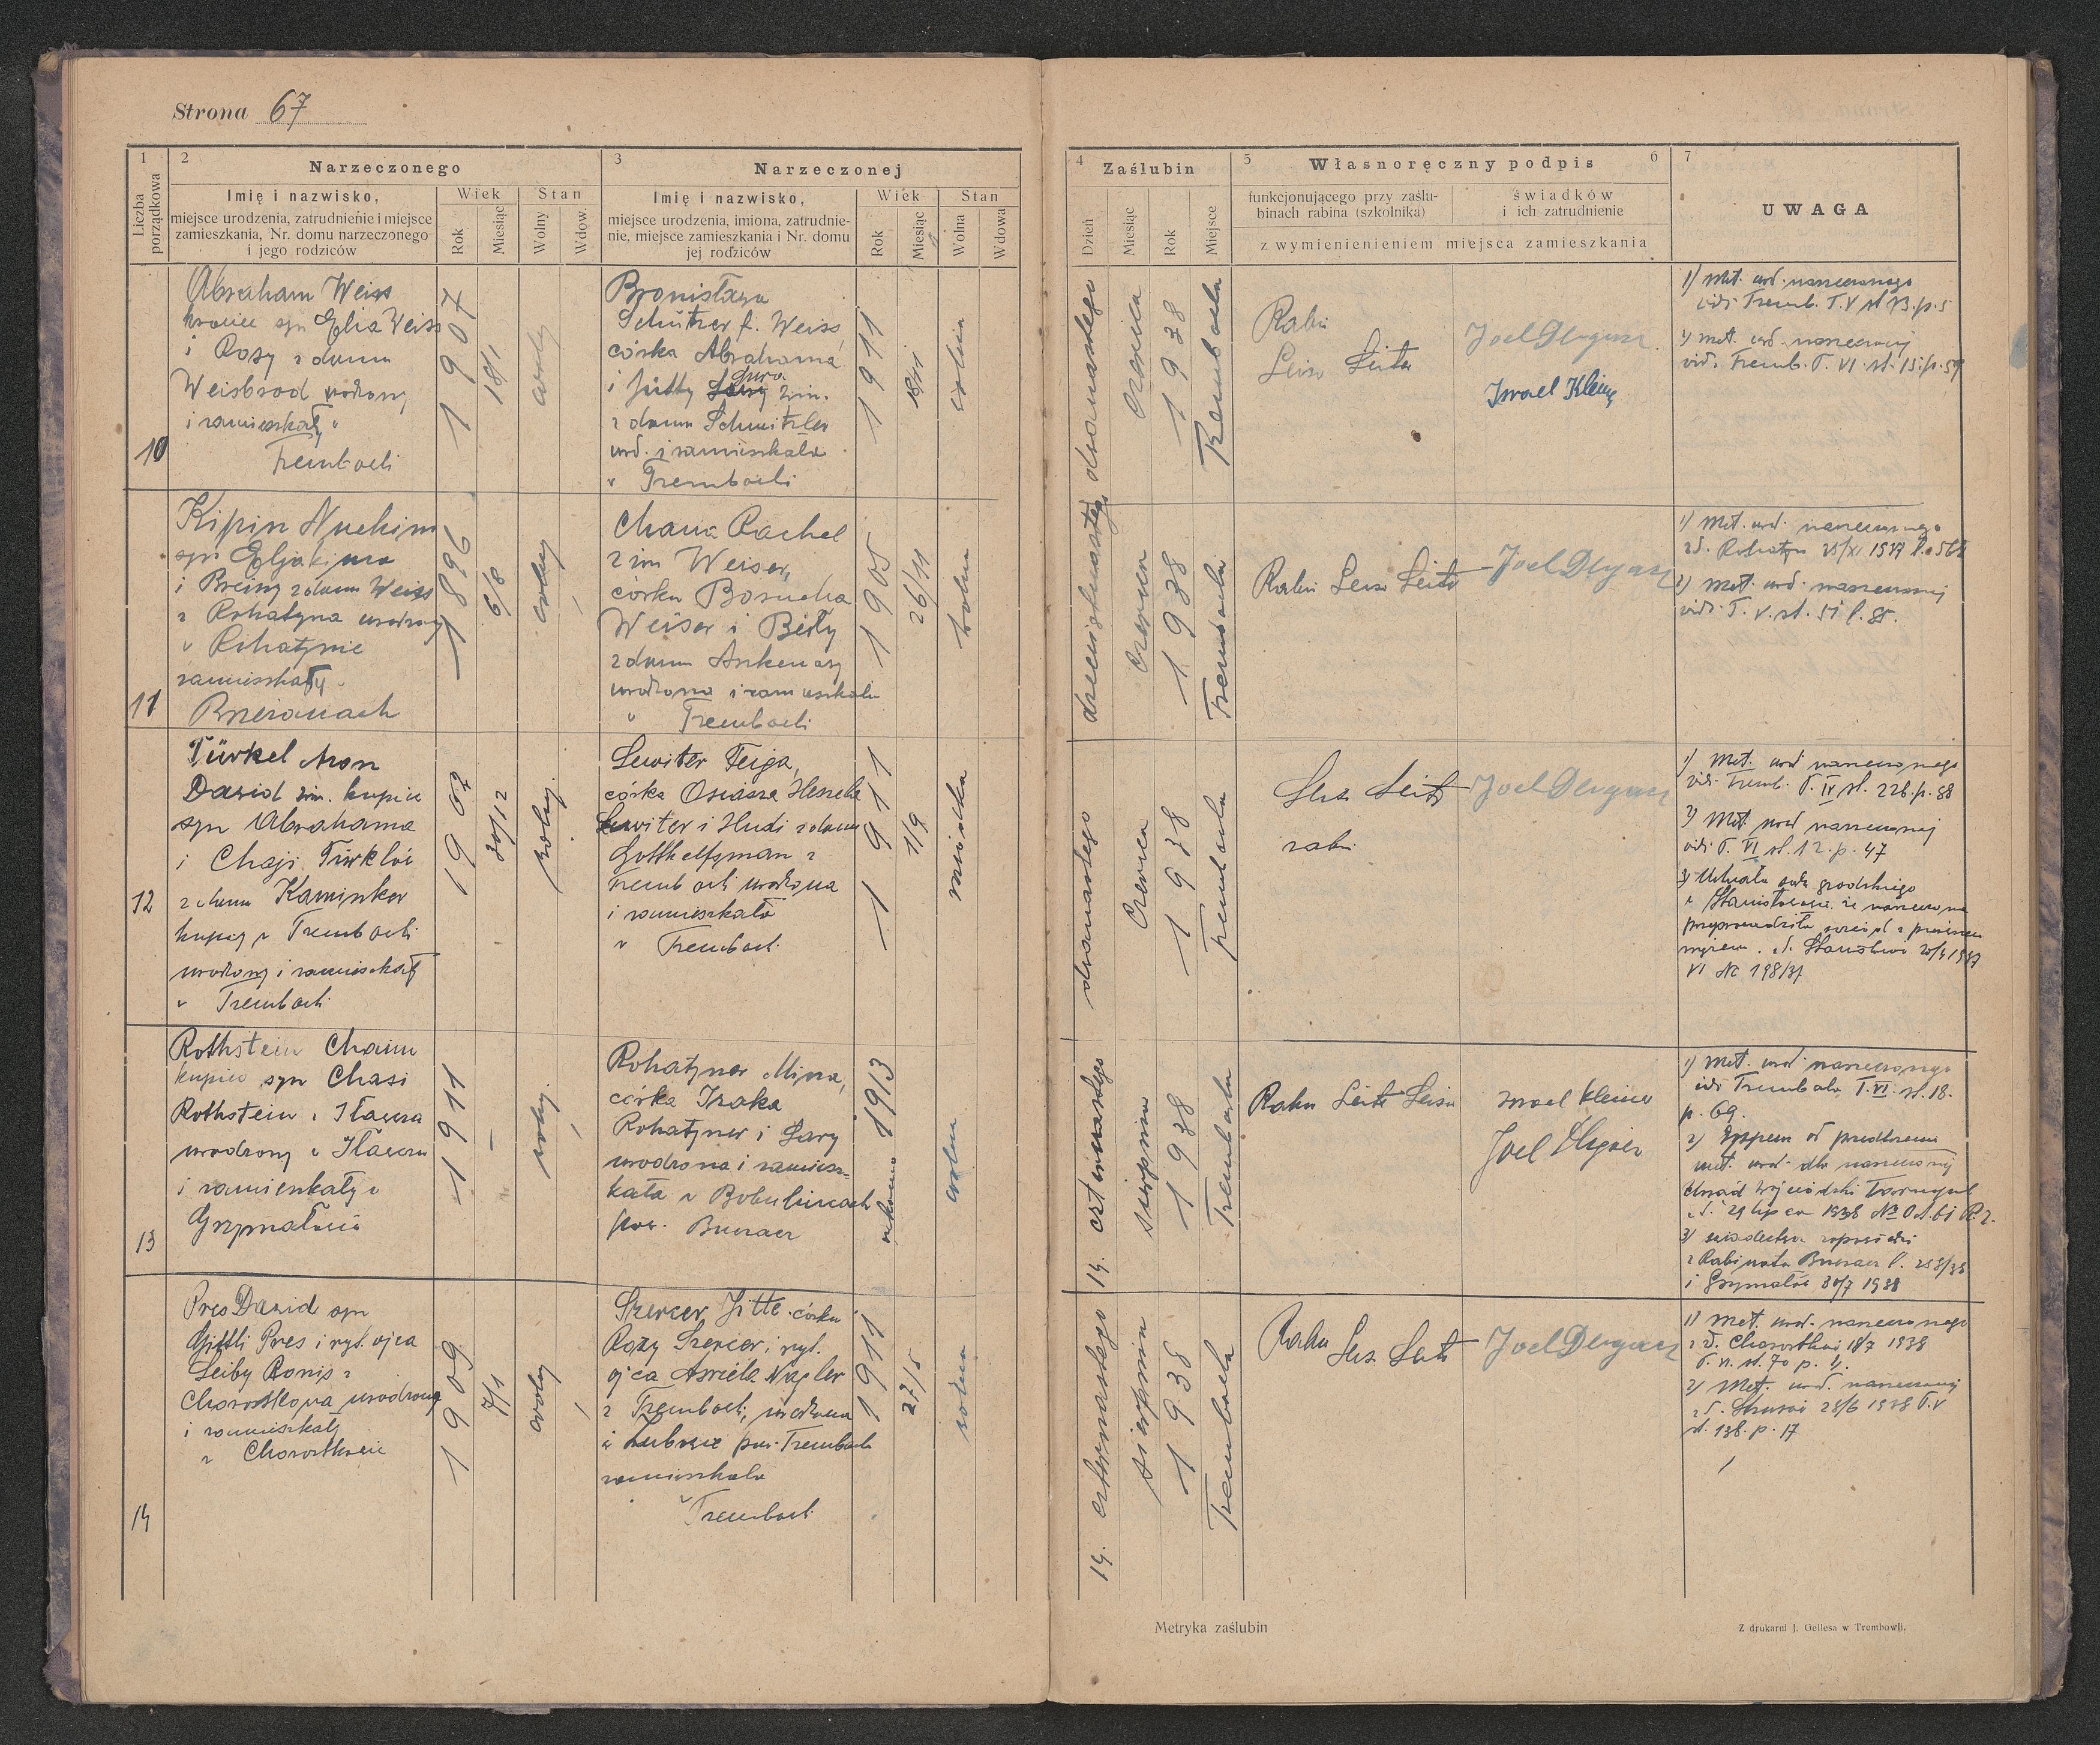 Strona 67
1
Liczba porządkowa
2
Narzeczonego
Imię i nazwisko,
miejsce urodzenia, zatrudnienie i miejsce
zamieszkania, Nr. domu narzeczonego
i jego rodziców
Wiek
Rok
Miesiąc
Stan
Wolny
Wdow.
3
Narzeczonej
Imię i nazwisko,
miejsce urodzenia, imiona, zatrudnie-
nie, miejsce zamieszkania i Nr. domu
jej rodziców
Wiek
Rok
Miesiąc
Stan
Wolna
Wdowa
4
Zaślubin
Dzień
Miesiąc
Rok
Miejsce
5
Własnoręczny podpis
6
funkcjonującego przy zaślu-
binach rabina (szkolnika)
świadków
i ich zatrudnienie
z wymienienieniem miejsca zamieszkania
7
UWAGA
10
Abraham Weiss
syn Eglia Weiss
i Rozy z domu
Weisbrod urodzony
i zamieszkały w
Trembowli
1907
18/1
wolny
Bronisława
Schützer f. Weiss
córka Abrahama
i Jütty Sury zim.
z domu Schmitzler
urd. i zamieszkała
w Trembowli
1911
wolna
dwunastego
czerwca
1938
Trembowla
Rabin
Leiser Leiter
Joel Dlugacz
Israel Kleiner
1) Met. urd. narzeczonego
vide Tremb. T. V st 13. p. 5
2) Met. urd. narzeczonej
vide Tremb. T. VI. st. 15. p. 59
11
Kipin Nuchim
syn Egljakima
i Breiny z domu Weiss
z Rohatyna urodzony
w Rohatynie
zamieszkały w
Brzeżanach
1896
6/8
wolny
Chana Rachel
zim Weiser,
córka Borucha
Weiser i Beily
z domu Askenazy
urodzona i zamieszkała
w Trembowli
1905
26/11
wolna
dziewiętnastego
czerwca
1938
Trembowla
Rabin Leiser Leiter
Joel Dlugacz
1) Met. urd. narzeczonego
z d. Rohatyn 25/XI 1937 l. 568
2) Met. urd. narzeczonej
vide T. V. st. 51 l. 85.
12
Türkel Aron
Dawid zim. kupiec
syn Abrahama
i Chaji Türklów
z domu Kaminker
kupiec w Trembowli
urodzony i zamieszkały
w Trembowli
1902
30/12
wolny
Lewiter Feiga,
córka Osiasza Heszela
Lewiter i Hudi z domu
Gotthelfgman z
Trembowli urodzona
i zamieszkała
w Trembowli
1911
11/9
dwunastego
czerwca
1938
Trembowla
Leiser Leiter
rabin
Joel Dlugacz
1) Met. urd narzeczonego
vide Tremb. T. IV st. 226. p. 88
2) Met. urd narzeczonej
vide T. VI st. 12. p. 47
3) Uchwała sądu grodzkiego
w Stanisławowie że narzeczona
przeprowadziła rozwód z pierwszym
mężem
VI Nr 198/37
13
Rothstein Chaim
kupiec syn Chasi
Rothstein z Iławcza
urodzony w Iławczu
i zamieszkały w
Grzymałowie
1911
—
wolny
Rohatyner Mina,
córka Izaka
Rohatyner i Sary
urodzona i zamiesz-
kała w Bobulincach
pow. Buczacz
1913
wolna
14. czternastego
sierpnia
1938
Trembowla
Rabin Leiter Leiser
Israel Kleiner
Joel Dlugacz
1) Met. urd. narzeczonego
vide Trembowla, T. VI. st. 18.
p. 69.
2) Dyspens od przedłożenia
met. urd. dla narzeczonej
Urząd Wojewódzki Tarnopol
z d. 29 lipca 1938
3) świadectwa zapowiedzi
z Rabinatu Buczacz l. 258/38
i Grzymałów 30/7 1938
14
Pres Dawid syn
Gittli Pres i ryt. ojca
Leiby Ronis z
Chorostkowa urodzony
i zamieszkały
w Chorostkowie
1909
7/1
wolny
Szercer Jitte córka
Rozy Szercer i ryt.
ojca Asriela Nagler
z Trembowli, urodzona
w pow. Trembowla
zamieszkała
w Trembowli
1911
27/5
wolna
14. czternastego
sierpnia
1938
Trembowla
Rabin
Leiser Leiter
Joel Dlugacz
1) Met. urd. narzeczonego
z d. Chorostków 18/7 1938
st. 70 p. 4.
2) Met. urd. narzeczonej
z d. Strusów 28/6 1938 T. V
st. 138. p. 17
Metryka zaślubin
Z drukarni J. Gellesa w Trembowli.